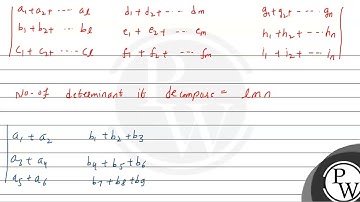 a₁+a₂+ ---- aℓ d₁+d₂+ --- dₘ g₁+g₂+ ----- gₙ
b₁+b₂+ --- bℓ e₁+e₂+ --- eₘ h₁+h₂+ --- hₙ
c₁+c₂+ ---- cℓ f₁+f₂+ --- fₘ i₁+i₂+ --- iₙ
No-of determinant it decompose = lmn
a₁+a₂ b₁+b₂+b₃
a₃+a₄ b₄+b₅+b₆
a₅+a₆ b₇+b₈+b₉
P
W
P
W